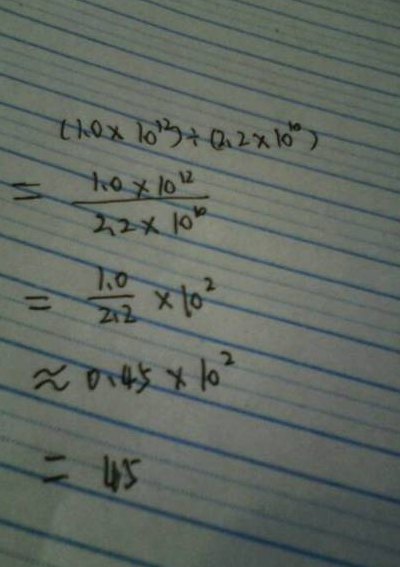 (1.0 × 10¹²) ÷ (2.2 × 10¹⁰)
= 1.0 × 10¹² / 2.2 × 10¹⁰
= 1.0 / 2.2 × 10²
≈ 0.45 × 10²
= 45